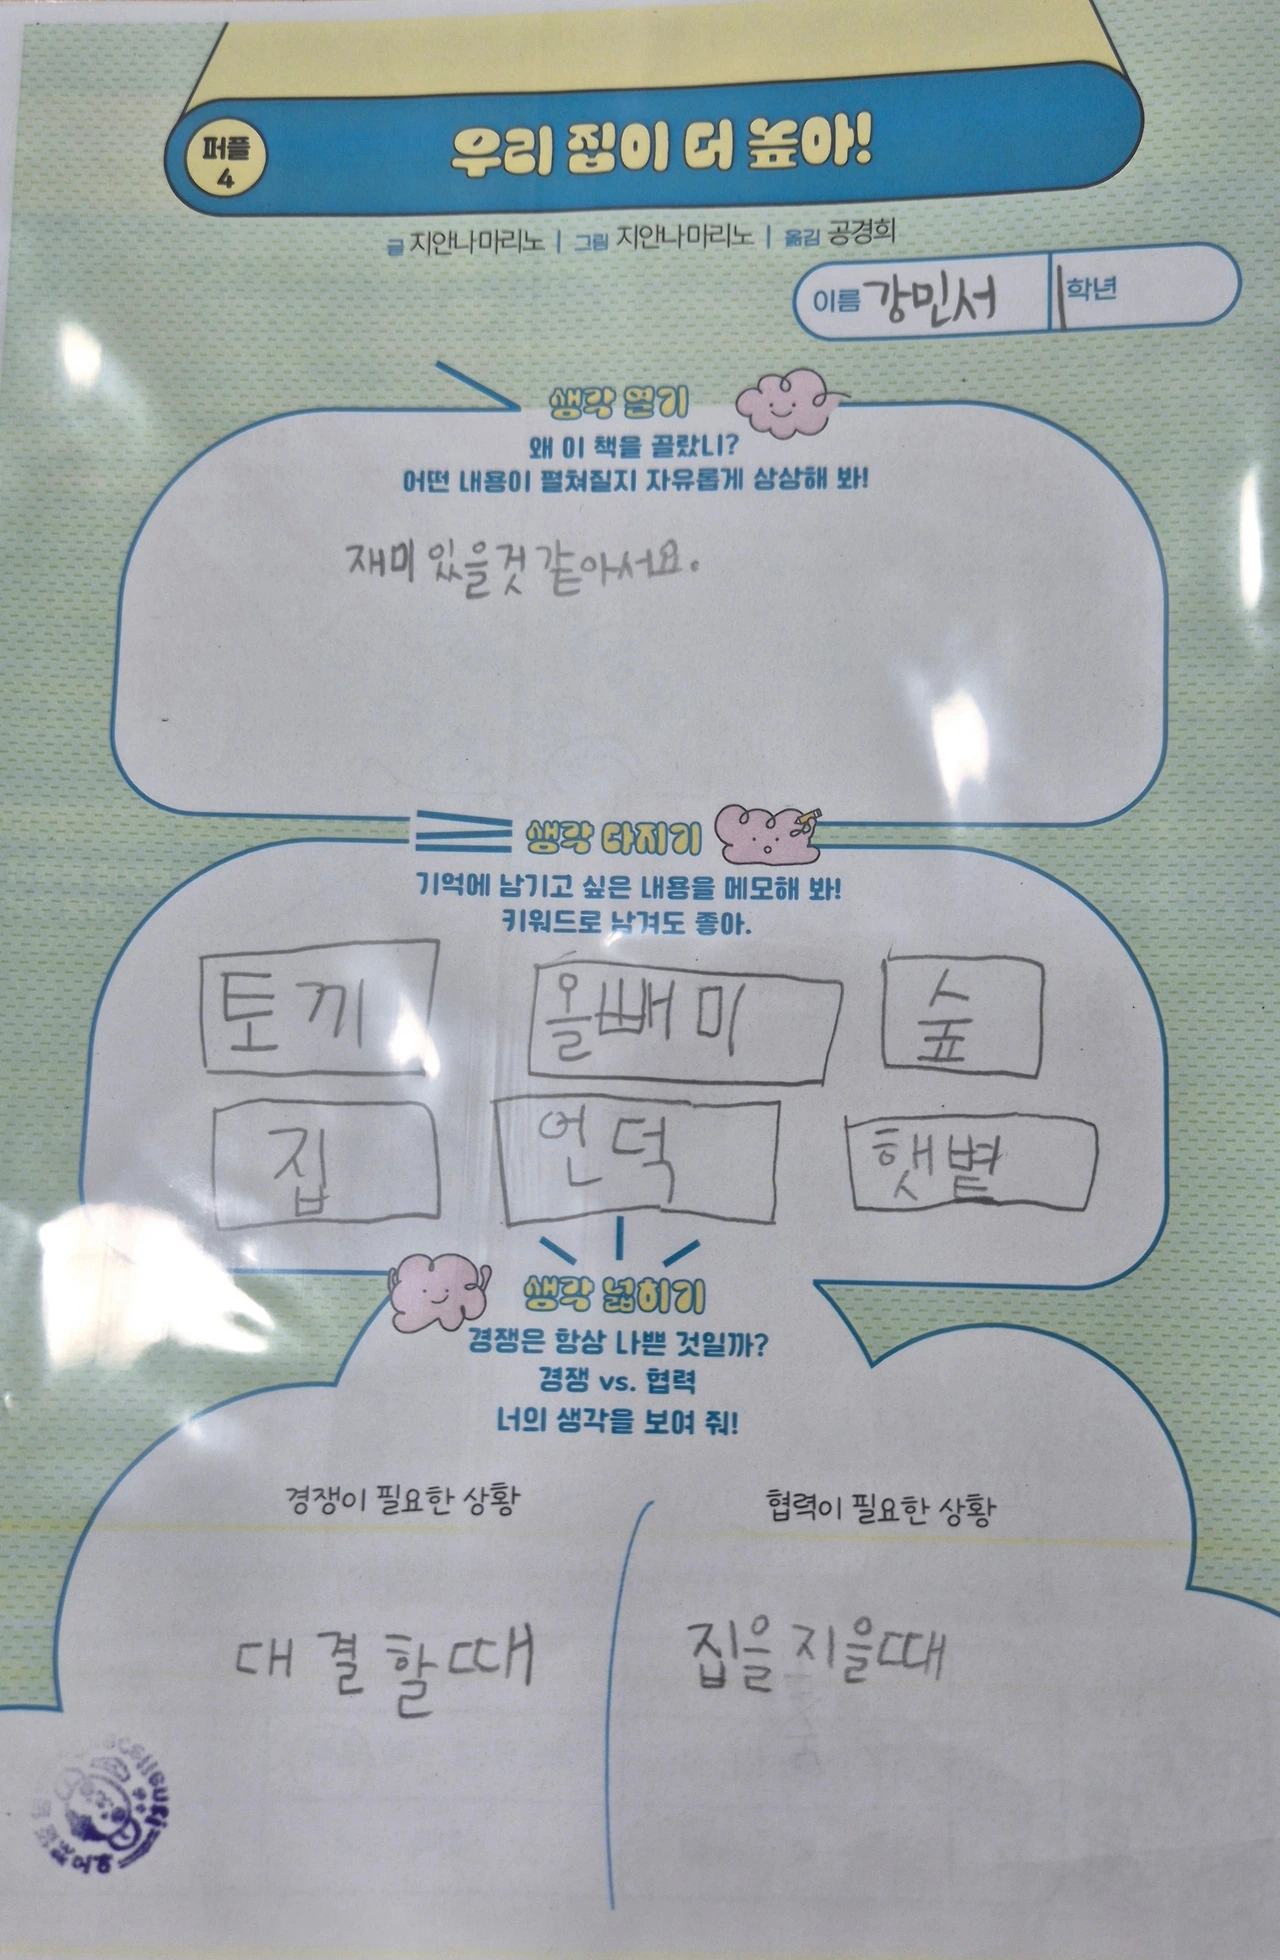 퍼플
4
우리 집이 더 높아!
글 지안나 마리노 | 그림 지안나 마리노 | 옮김 공경희
이름 강민서 1학년
생각 열기
왜 이 책을 골랐니?
어떤 내용이 펼쳐질지 자유롭게 상상해 봐!
재미있을것 같아서요.
생각 다지기
기억에 남기고 싶은 내용을 메모해 봐!
키워드로 남겨도 좋아.
토끼 올빼미 숲
집 언덕 햇볕
생각 넓히기
경쟁은 항상 나쁜 것일까?
경쟁 vs. 협력
너의 생각을 보여 줘!
경쟁이 필요한 상황 협력이 필요한 상황
대결할때 집을 지을때